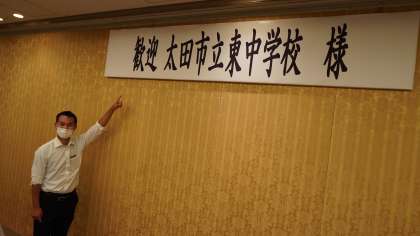 歓迎 太田市立東中学校 様